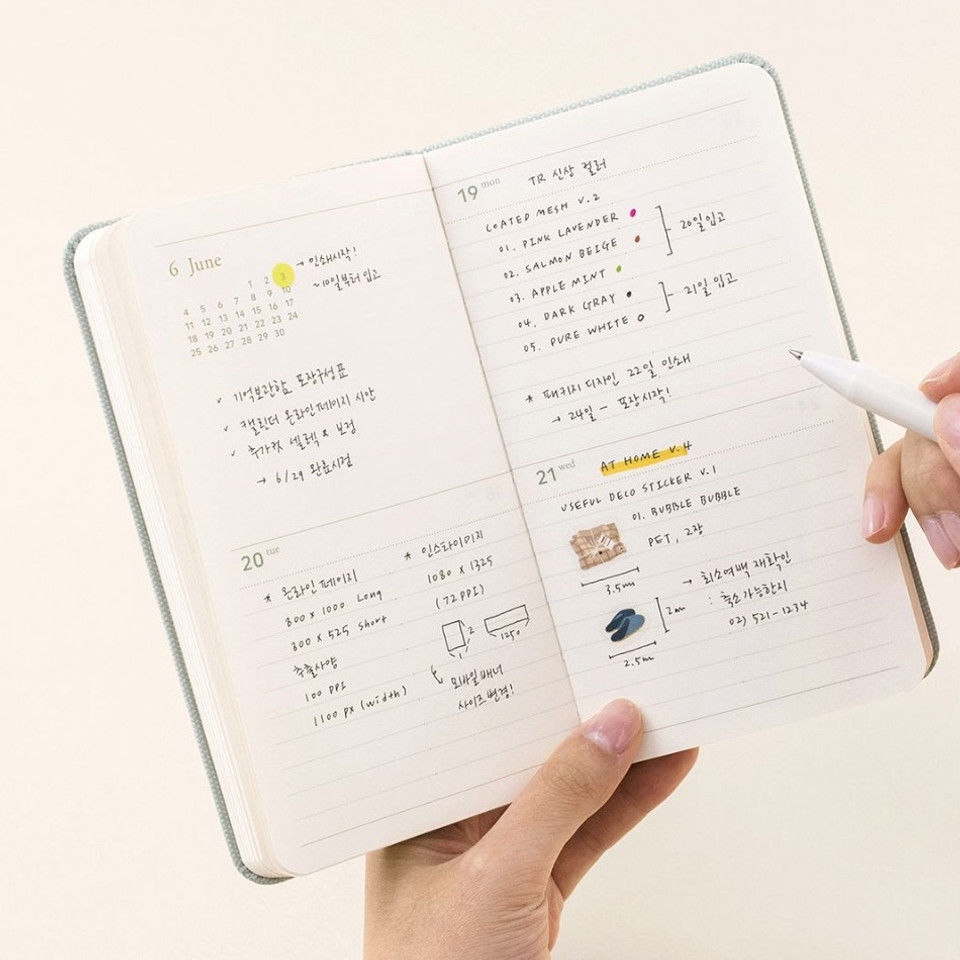 6 June
→ 인쇄시작!
~10일부터 입고
1 2 3
4 5 6 7 8 9 10
11 12 13 14 15 16 17
18 19 20 21 22 23 24
25 26 27 28 29 30
✓ 기억보관함 포장구성표
✓ 캘린더 온라인페이지 시안
✓ 추가컷 셀렉 & 보정
→ 6/29 완료시점
20 tue
* 온라인 페이지
800 x 1000 Long
800 x 525 short
추출사양
100 PPI
1100 px (width)
* 인스타이미지
1080 x 1325
(72PPI)
2
1
1250
모바일배너
사이즈변경!
19 mon
TR 신상 컬러
COATED MESH V.2
01. PINK LAVENDER
02. SALMON BEIGE
20일입고
03. APPLE MINT
04. DARK GRAY
21일 입고
05. PURE WHITE
* 패키지 디자인 22일 인쇄
→ 24일 - 포장시작!
21 wed
AT HOME V.4
USEFUL DECO STICKER V.1
01. BUBBLE BUBBLE
PET, 2장
3.5cm
→ 최소여백 재확인
: 축소가능한지
02) 521-1234
2cm
2.5cm